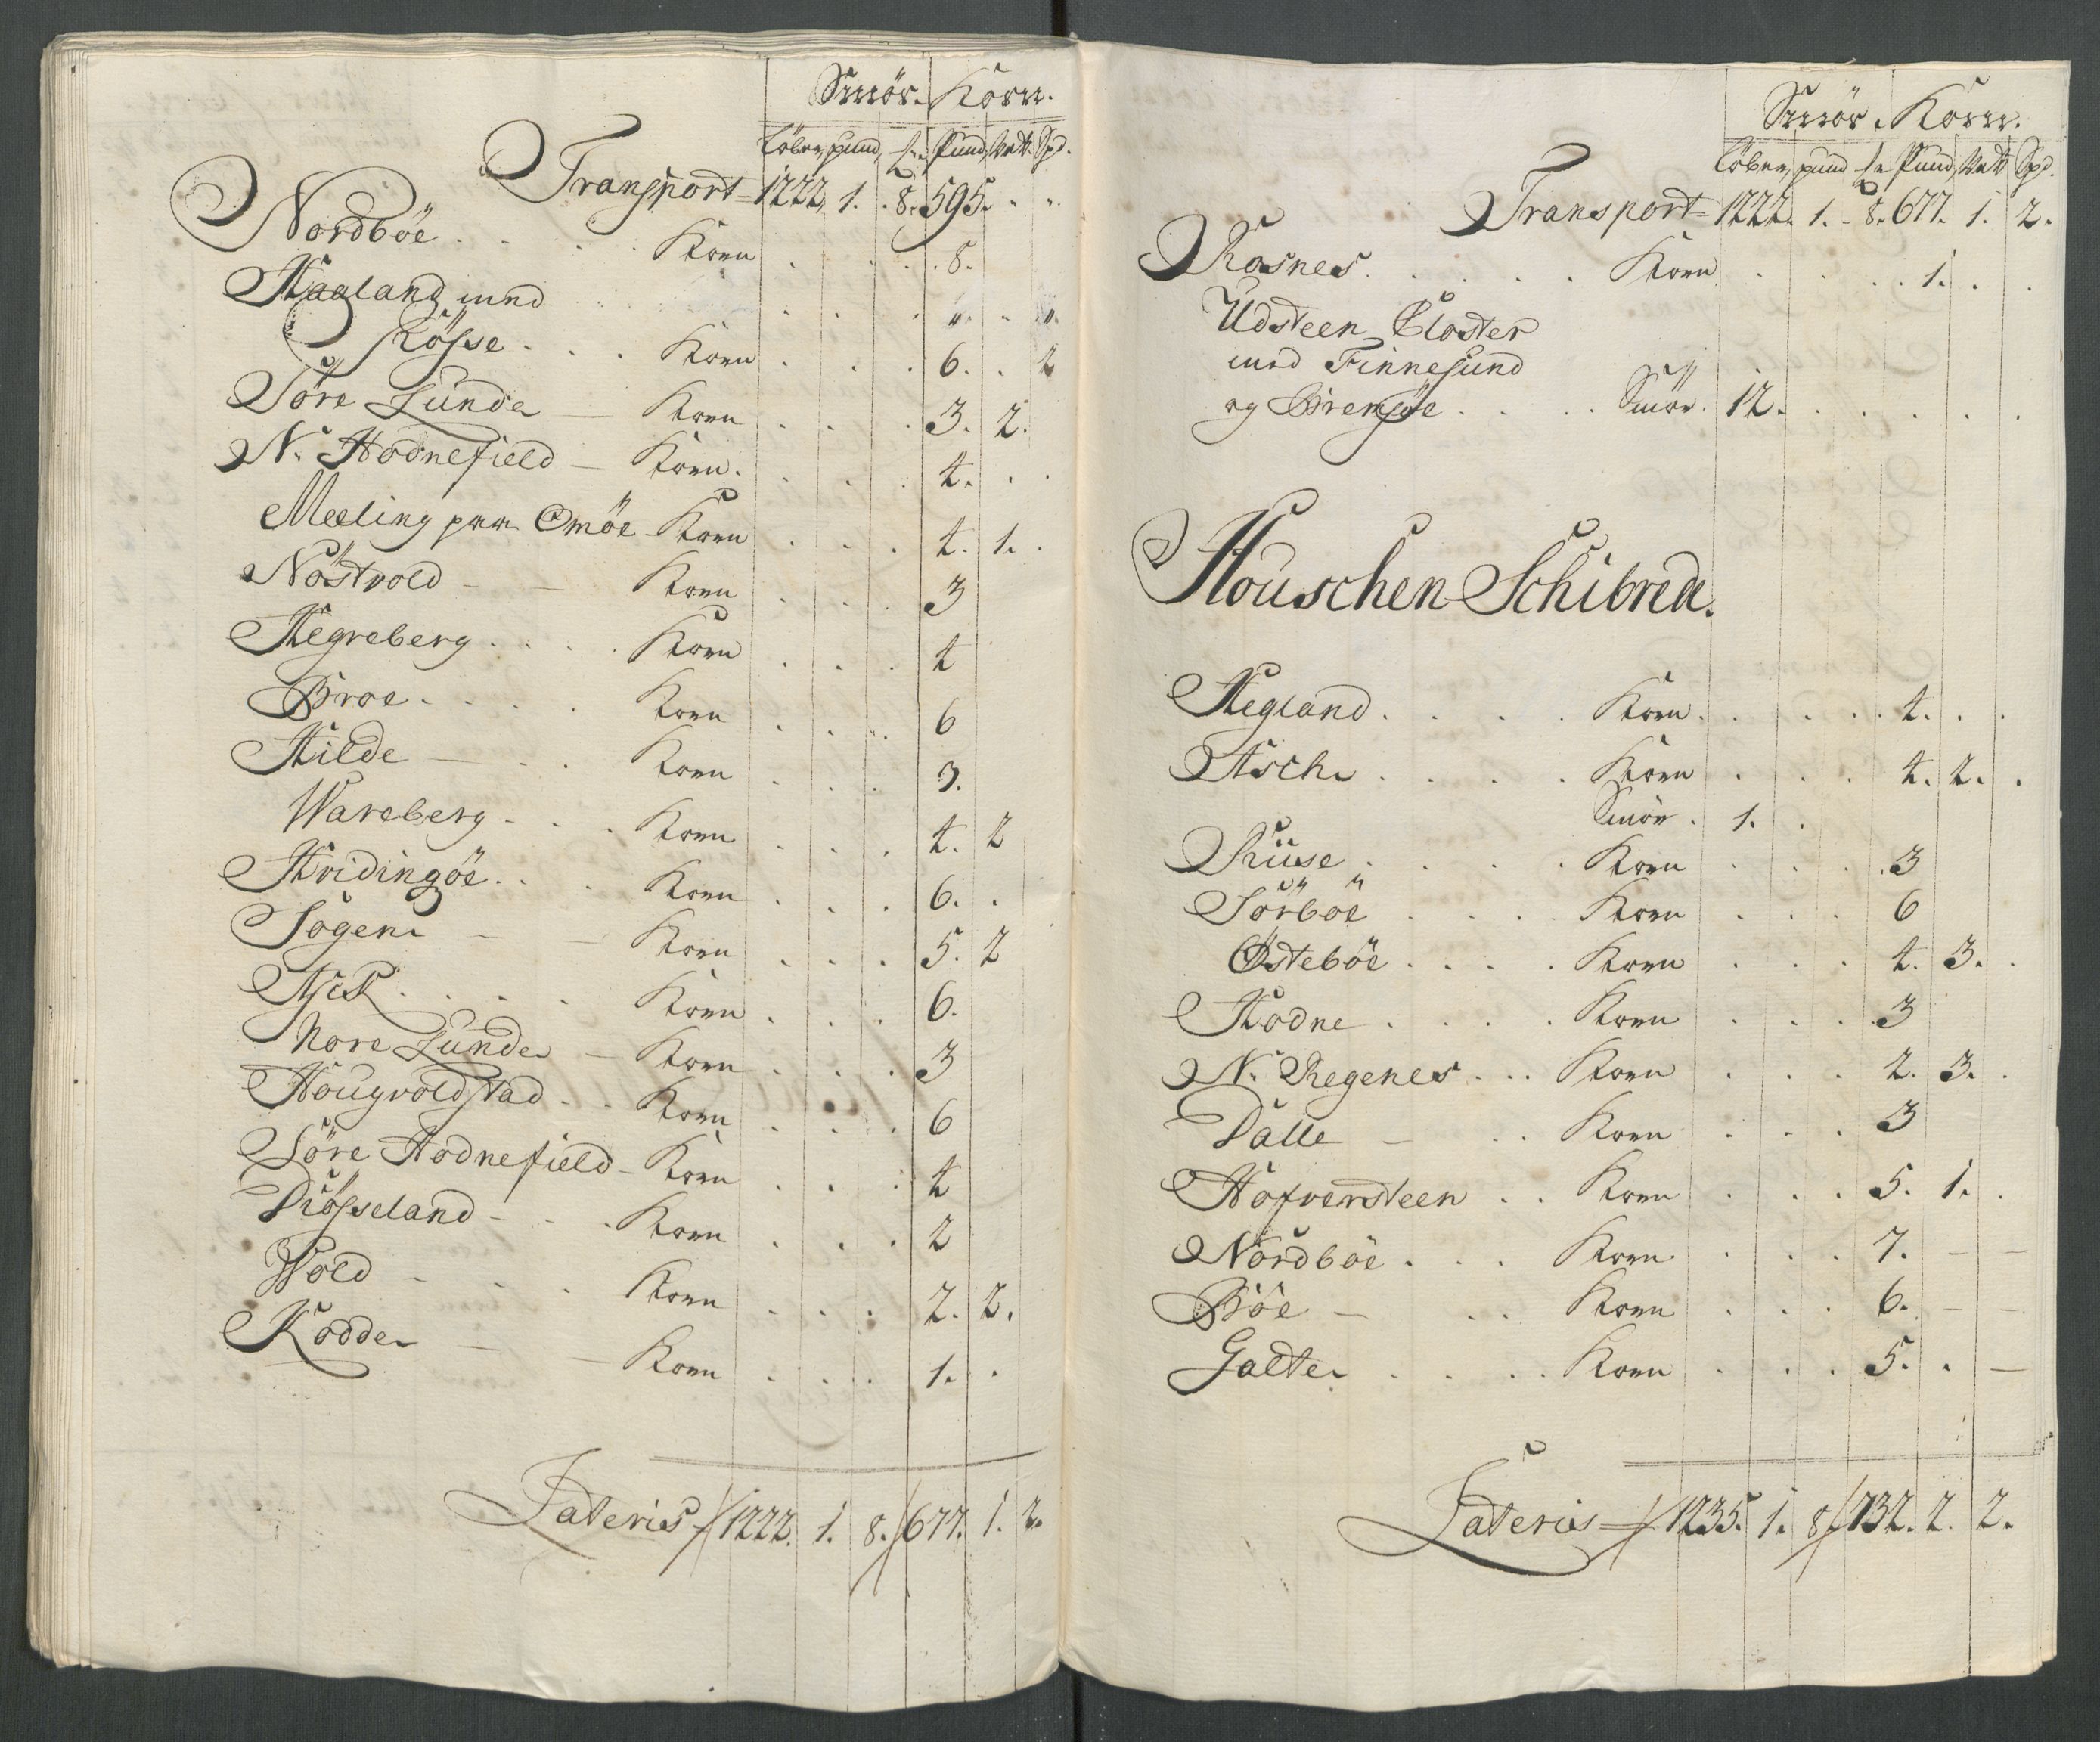 Smör. Korn.
Löber, pund, Pund, Vett. Spd.
Transport - 1222, 1. 8. 595. " "
Nordböe . . . Korn . . . 8.
Haaland med . . . " . "
Rösse . . . Korn . . . 6. . 2
Söre Lunde — Korn . . . 3. 2.
N. Hodnefield — Korn . . . 4. . .
Meeling paa Omöe Korn . . . 4. 1. .
Nöstvold — — Korn . . . 3
Hegreberg . . . Korn . . . 4
Broe . . . Korn . . . 6
Hilde — . . Korn . . . 3.
Wareberg . . . Korn . . . 4. 2
Hridingöe . . . Korn . . . 6. .
Sogen — — Korn . . . 5. 2
Ask . . . Korn . . . 6.
Nore Lunde — Korn . . . 3
Hougvoldstad . . Korn . . . 6
Söre Hodnefield - Korn . . . 4
Diösseland - . . Korn . . . 2
Wold - . . Korn . . . 2. 2.
Kodde — — Korn . . . 1. .
Lateris 1222. 1. 8. 677. 1. 2.
Smör. Korn.
Löber, pund Pund, Vett Spd.
Transport - 1222. 1. - 8. 677. 1. 2.
Rosnes . . . Korn . . . 1. . .
Udsteen Closter
med Finnesund
og Bremsöe . . . Smör. 12. . . .
Houschen Schibrede.
Hegland . . . Korn . . . 4. . .
Asche . . . Korn . . . 4. 2. .
Smör . 1. .
Riise . . . Korn . . . 3
Sörböe . . . Korn . . . 6
Östeböe . . . Korn . . . 4. 3. .
Hodne . . . Korn . . . 3
N. Regenes . . . Korn . . . 2. 3. .
Dalle — . . Korn . . . 3
Hofversteen . . Korn . . . 5. 1. .
Nordböe . . . Korn . . . 7. — —
Böe — . . Korn . . . 6. — —
Galte . . . Korn . . . 5. . —
Lateris 1235. 1. 8. 732. 2. 2.